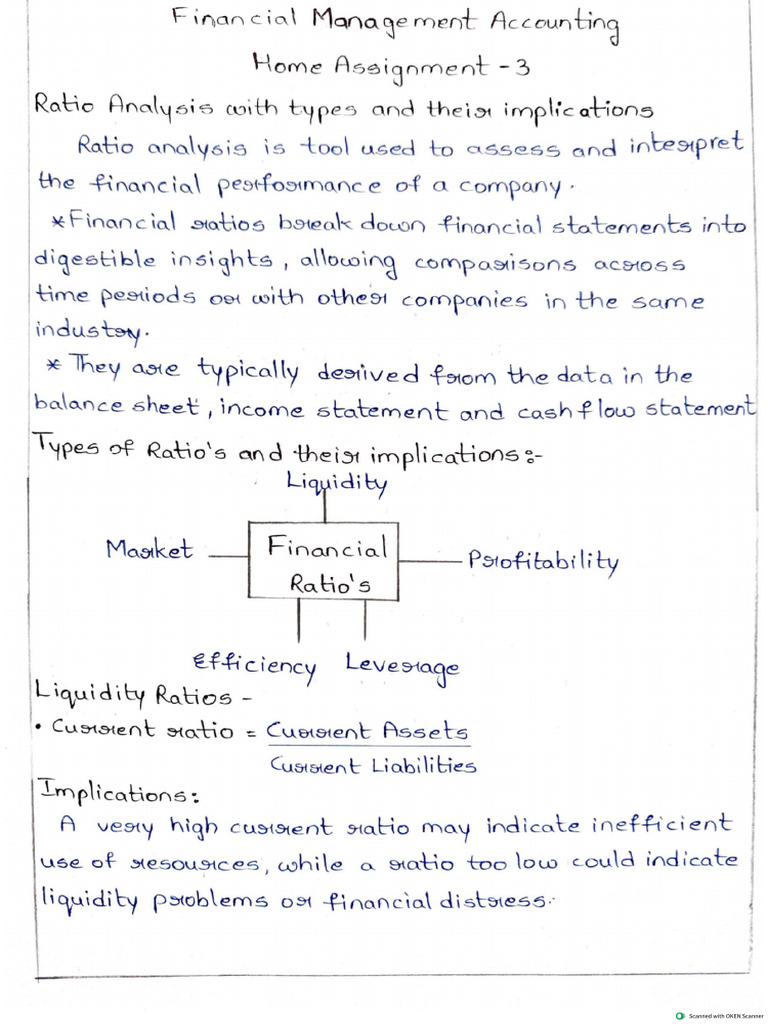 Financial Management Accounting
Home Assignment - 3
Ratio Analysis with types and their implications
Ratio analysis is tool used to assess and interpret
the financial performance of a company.
*Financial ratios break down financial statements into
digestible insights, allowing comparisons across
time periods or with other companies in the same
industry.
* They are typically derived from the data in the
balance sheet, income statement and cash flow statement
Types of Ratio's and their implications:-
Liquidity
Market
Financial
Ratio's
Profitability
Efficiency Leverage
Liquidity Ratios -
• Current ratio = Current Assets
Current Liabilities
Implications:
A very high current ratio may indicate inefficient
use of resources, while a ratio too low could indicate
liquidity problems or financial distress.
Scanned with OKEN Scanner